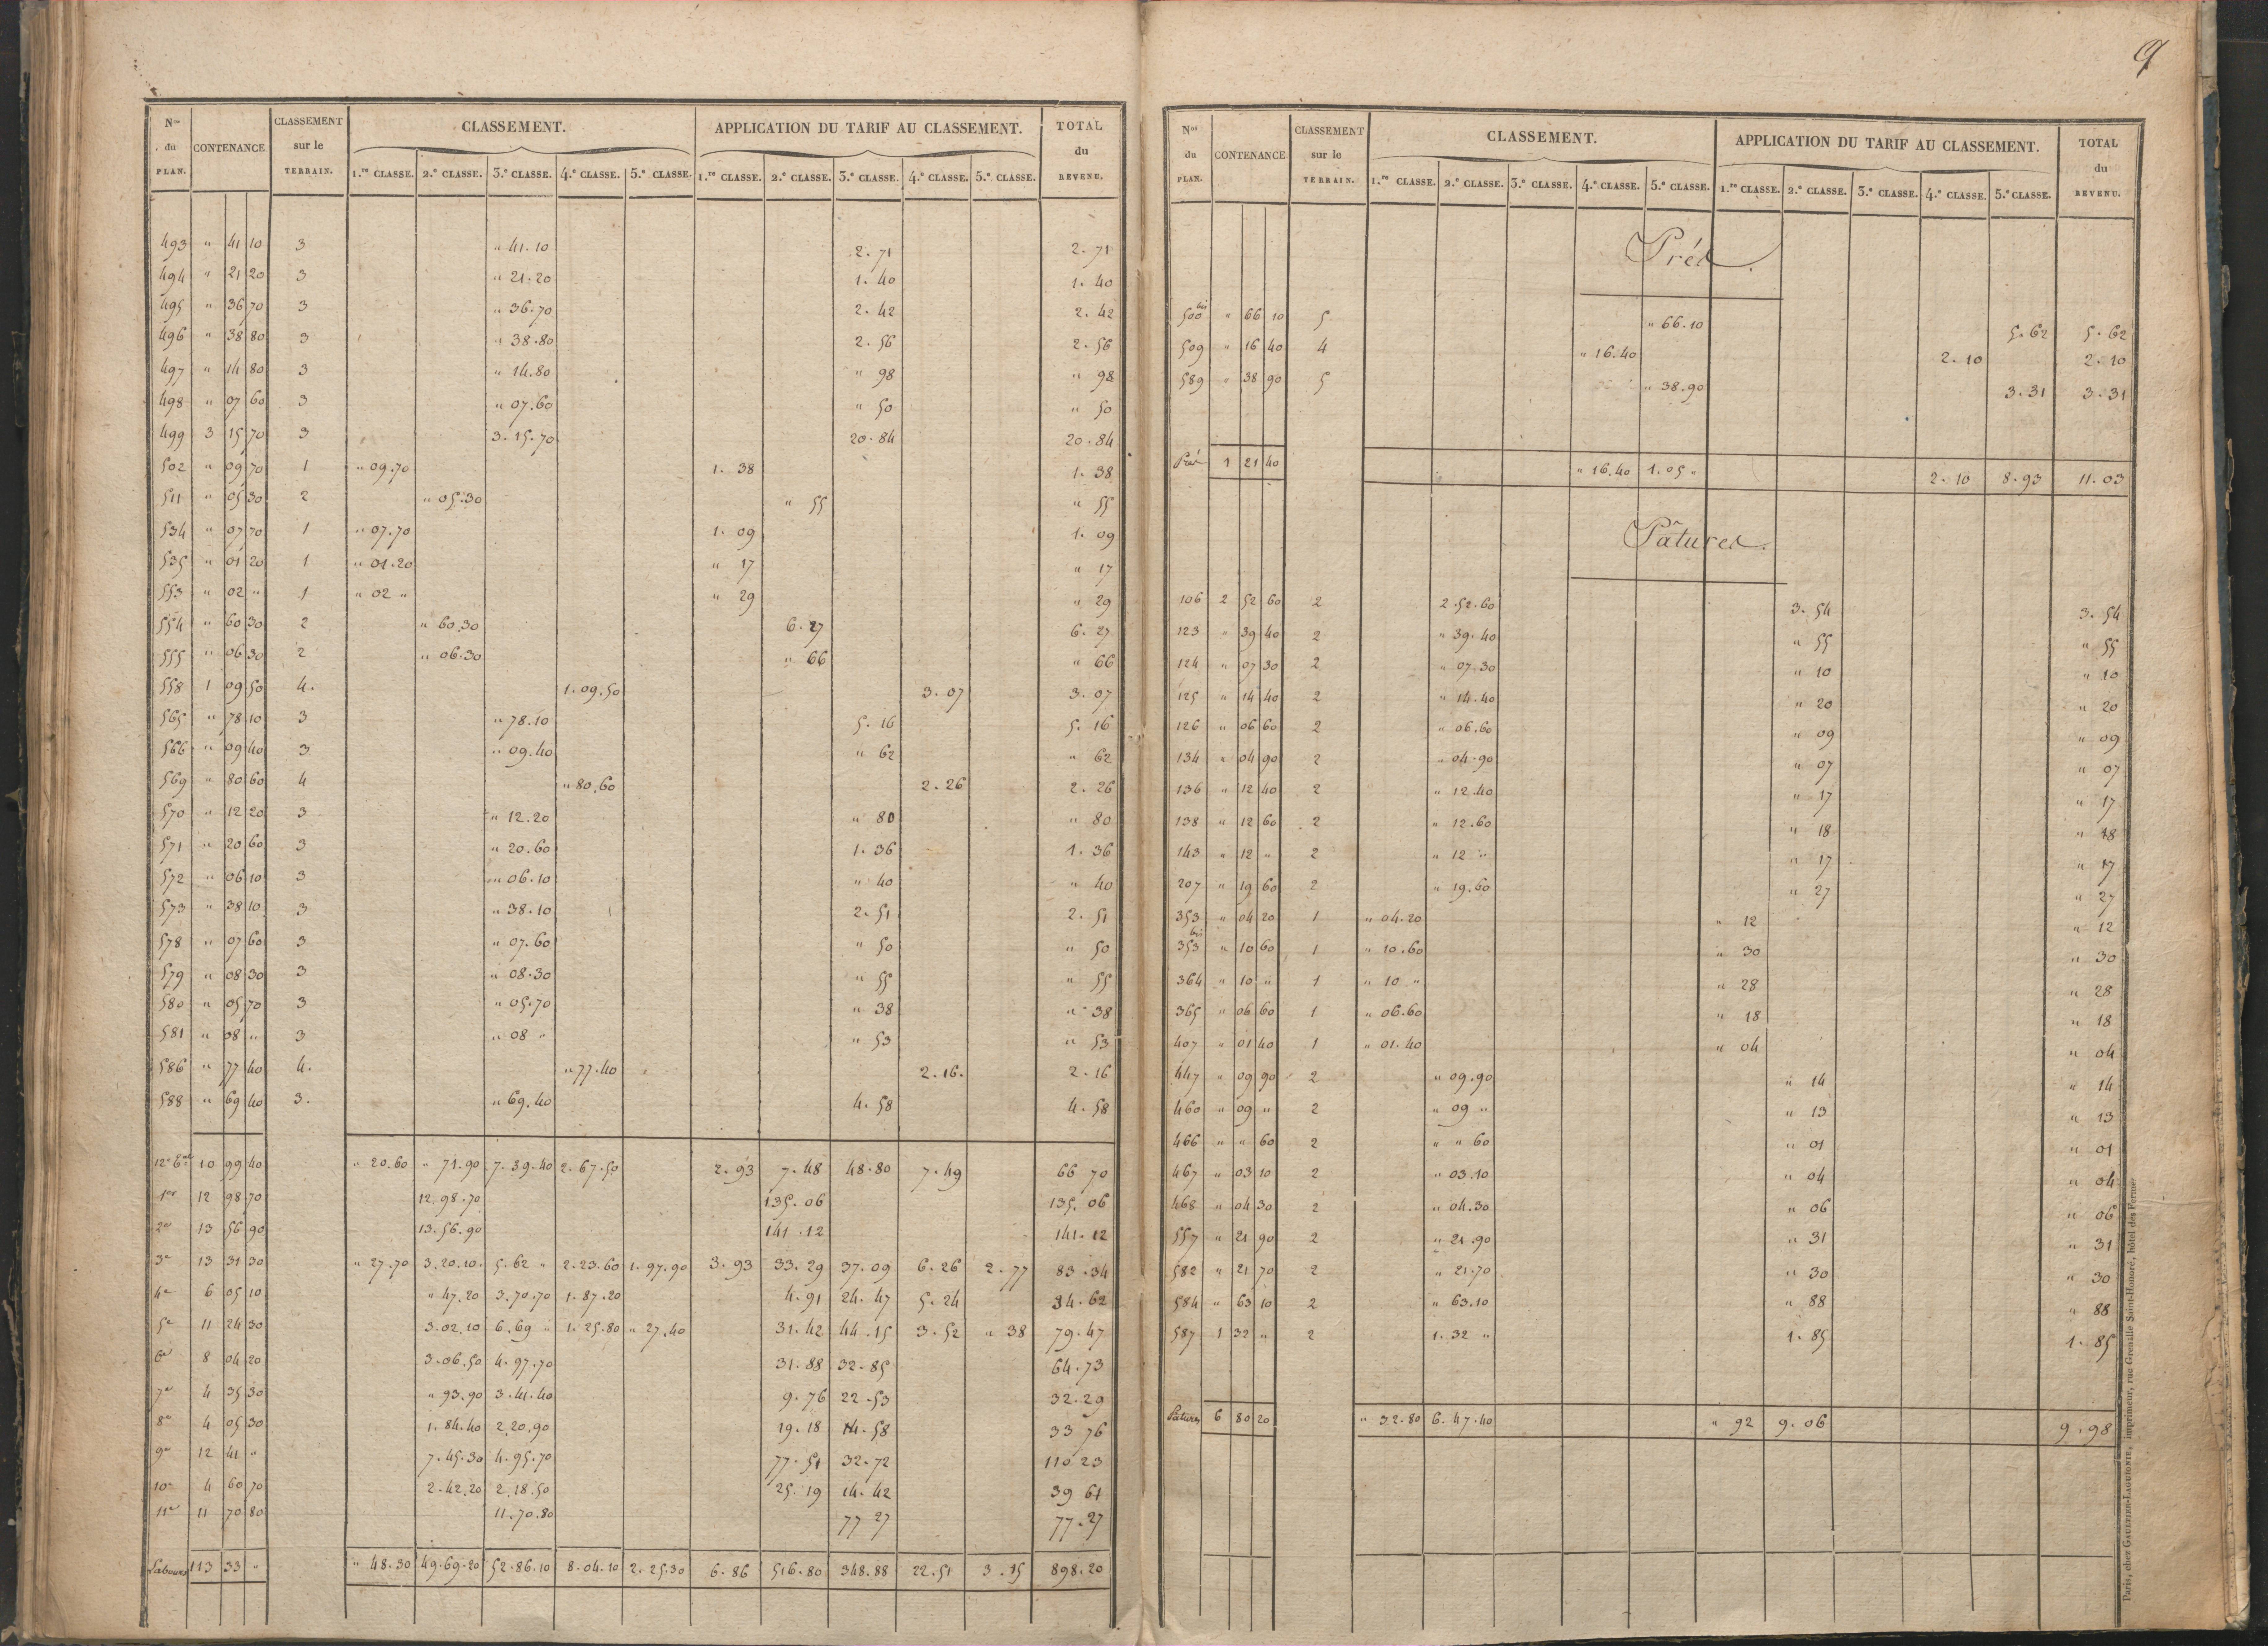 9
Nos du PLAN. CONTENANCE CLASSEMENT sur le TERRAIN. CLASSEMENT. APPLICATION DU TARIF AU CLASSEMENT. TOTAL du REVENU.
1.re CLASSE. 2.e CLASSE. 3.e CLASSE. 4.e CLASSE. 5.e CLASSE. 1.re CLASSE. 2.e CLASSE. 3.e CLASSE. 4.e CLASSE. 5.e CLASSE.
493 " 41 10 3 " 41.10 2.71 2.71
494 " 21 20 3 " 21.20 1.40 1.40
495 " 36 70 3 " 36.70 2.42 2.42
496 " 38 80 3 " 38.80 2.56 2.56
497 " 14 80 3 " 14.80 " 98 " 98
498 " 07 60 3 " 07.60 " 50 " 50
499 3 15 70 3 3.15.70 20.84 20.84
502 " 09 70 1 " 09.70 1.38 1.38
511 " 05 30 2 " 05.30 " 55 " 55
534 " 07 70 1 " 07.70 1.09 1.09
535 " 01 20 1 " 01.20 " 17 " 17
553 " 02 " 1 " 02 " " 29 " 29
554 " 60 30 2 " 60.30 6.27 6.27
555 " 06 30 2 " 06.30 " 66 " 66
558 1 09 50 4. 1.09.50 3.07 3.07
565 " 78 10 3 " 78.10 5.16 5.16
566 " 09 40 3 " 09.40 " 62 " 62
569 " 80 60 4 " 80.60 2.26 2.26
570 " 12 20 3 " 12.20 " 80 " 80
571 " 20 60 3 " 20.60 1.36 1.36
572 " 06 10 3 " 06.10 " 40 " 40
573 " 38 10 3 " 38.10 2.51 2.51
578 " 07 60 3 " 07.60 " 50 " 50
579 " 08 30 3 " 08.30 " 55 " 55
580 " 05 70 3 " 05.70 " 38 " 38
581 " 08 " 3 " 08 " " 53 " 53
586 " 77 40 4. " 77.40 2.16. 2.16
588 " 69 40 3. " 69.40 4.58 4.58
10 99 40 " 20.60 " 71.90 7.39.40 2.67.50 2.93 7.48 48.80 7.49 66 70
1er 12 98 70 12.98.70 135.06 135.06
2e 13 56 90 13.56.90 141.12 141.12
3e 13 31 30 " 27.70 3.20.10. 5.62 " 2.23.60 1.97.90 3.93 33.29 37.09 6.26 2.77 83.34
4e 6 05 10 " 47.20 3.70.70 1.87.20 4.91 24.47 5.24 34.62
5e 11 24 30 3.02.10 6.69 " 1.25.80 " 27.40 31.42 44.15 3.52 " 38 79.47
6e 8 04 20 3.06.50 4.97.70 31.88 32.85 64.73
7e 4 35 30 " 93.90 3.41.40 9.76 22.53 32.29
8e 4 05 30 1.84.40 2.20.90 19.18 14.58 33 76
9e 12 41 " 7.45.30 4.95.70 77.51 32.72 110 23
10e 4 60 70 2.42.20 2.18.50 25.19 14.42 39 61
11e 11 70 80 11.70.80 77 27 77.27
Labours 113 33 " " 48.30 49.69.20 52.86.10 8.04.10 2.25.30 6.86 516.80 348.88 22.51 3.15 898.20
Nos du PLAN. CONTENANCE. CLASSEMENT sur le TERRAIN. CLASSEMENT. APPLICATION DU TARIF AU CLASSEMENT. TOTAL du REVENU.
1.re CLASSE. 2.e CLASSE. 3.e CLASSE. 4.e CLASSE. 5.e CLASSE. 1.re CLASSE. 2.e CLASSE. 3.e CLASSE. 4.e CLASSE. 5.e CLASSE.
Prés.
500 bis " 66 10 5 " 66.10 5.62 5.62
509 " 16 40 4 " 16.40 2.10 2.10
589 " 38 90 5 " 38.90 3.31 3.31
Prés 1 21 40 " 16.40 1.05 " 2.10 8.93 11.03
Pâtures.
106 2 52 60 2 2.52.60 3.54 3.54
123 " 39 40 2 " 39.40 " 55 " 55
124 " 07 30 2 " 07.30 " 10 " 10
125 " 14 40 2 " 14.40 " 20 " 20
126 " 06 60 2 " 06.60 " 09 " 09
134 " 04 90 2 " 04.90 " 07 " 07
136 " 12 40 2 " 12.40 " 17 " 17
138 " 12 60 2 " 12.60 " 18 " 18
143 " 12 " 2 " 12 " " 17 " 17
207 " 19 60 2 " 19.60 " 27 " 27
353 " 04 20 1 " 04.20 " 12 " 12
353 bis " 10 60 1 " 10.60 " 30 " 30
364 " 10 " 1 " 10 " " 28 " 28
365 " 06 60 1 " 06.60 " 18 " 18
407 " 01 40 1 " 01.40 " 04 " 04
447 " 09 90 2 " 09.90 " 14 " 14
460 " 09 " 2 " 09 " " 13 " 13
466 " " 60 2 " " 60 " 01 " 01
467 " 03 10 2 " 03.10 " 04 " 04
468 " 04 30 2 " 04.30 " 06 " 06
557 " 21 90 2 " 21.90 " 31 " 31
582 " 21 70 2 " 21.70 " 30 " 30
584 " 63 10 2 " 63.10 " 88 " 88
587 1 32 " 2 1.32 " 1.85 1.85
Pâtures 6 80 20 " 32.80 6.47.40 " 92 9.06 9.98
Paris, chez GAULTIER-LAGUIONIE, imprimeur, rue Grenelle Saint-Honoré, hôtel des Fermes